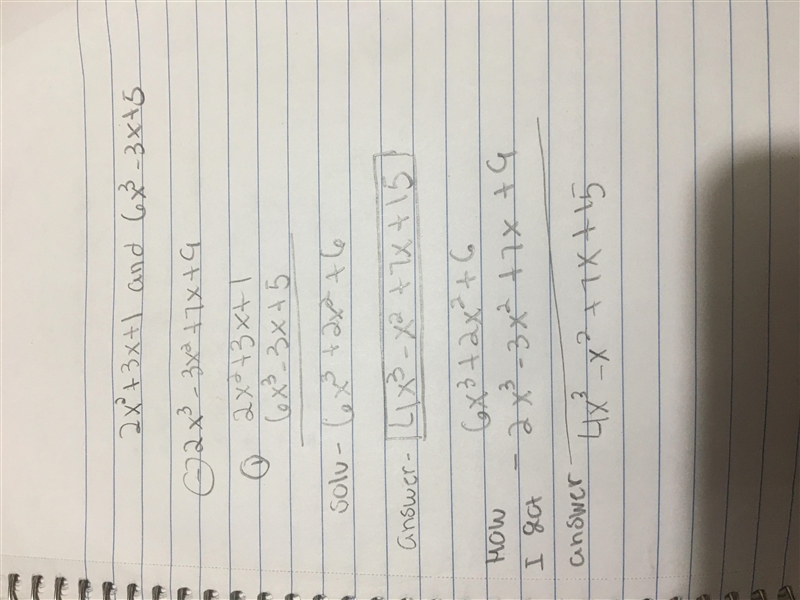 2x²+3x+1 and 6x³-3x+5
-2x³-3x²+7x+9
① 2x²+3x+1
6x³-3x+5
solu - 6x³+2x²+6
answer - 4x³-x²+7x+15
6x³+2x²+6
How
I got -2x³-3x²+7x+9
answer
4x³-x²+7x+15